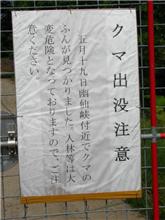 クマ出没注意
五月十九日幽仙峡付近でクマの
ふんが見つかりました。入林等は大
変危険となっておりますので、ご注
意ください。